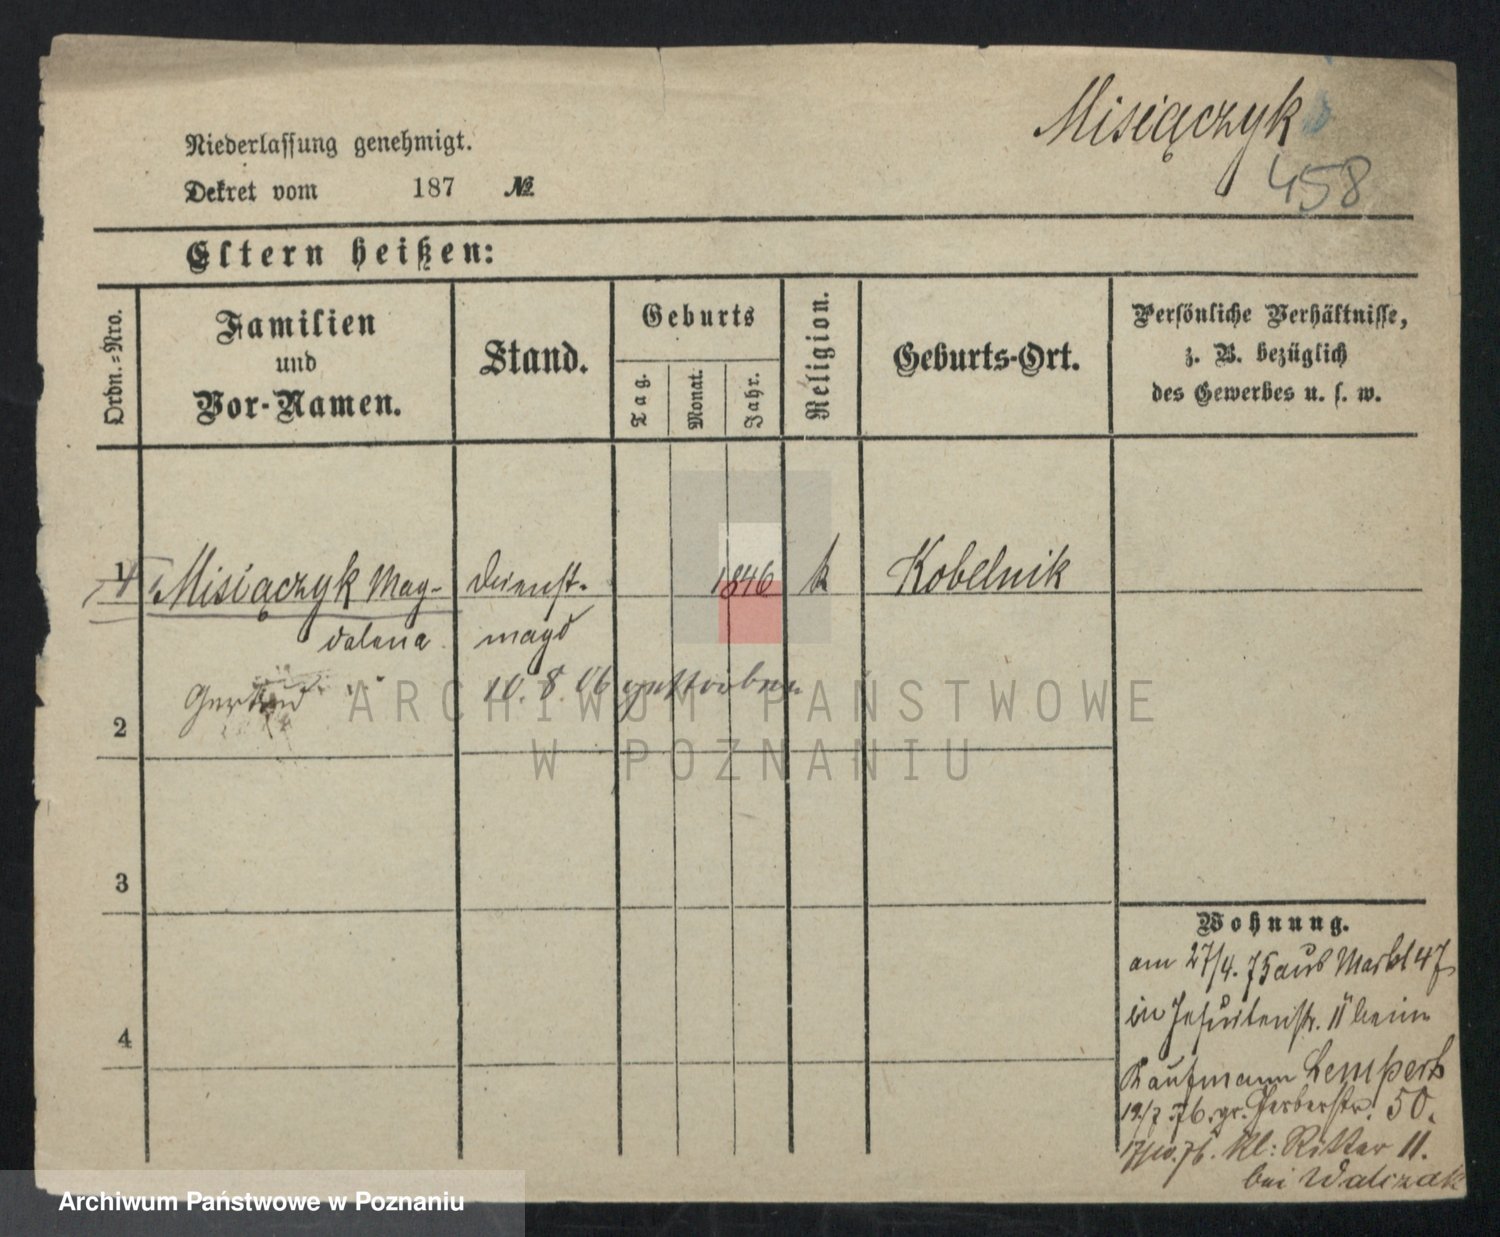 Misiączyk
458
Niederlassung genehmigt.
Dekret vom 187 №
Eltern heißen:
Ordn.-Nro.
Familien
und
Vor-Namen.
Stand.
Geburts
Tag.
Monat.
Jahr.
Religion.
Geburts-Ort.
Persönliche Verhältnisse,
z. B. bezüglich
des Gewerbes u. s. w.
1 Misiączyk Mag- Dienst- 1846 k Kobelnik
dalena magd
10. 8. 06 gestorben
2
3
4
Wohnung.
am 27/4. 75 aus Markt 47
in Jesuitenstr. 11 beim
Kaufmann Lempert
19/7 76. gr. Gerberstr. 50.
17/10. 76. Kl: Ritter 11.
bei Walczak
ARCHIWUM PAŃSTWOWE
W POZNANIU
Archiwum Państwowe w Poznaniu